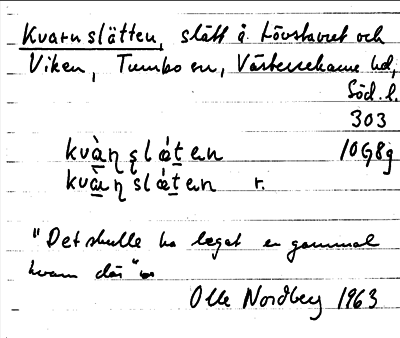 Kvarnslätten, slått å Lövstavret och
Viken, Tumbo sn, Västerrekarne hd,
Söd. l.
303
kvàɳʂlǽten 10G8g
kvàɳʂlǽten r.
"Det skulle ha legat en gammal
kvarn där"
Olle Nordberg 1963